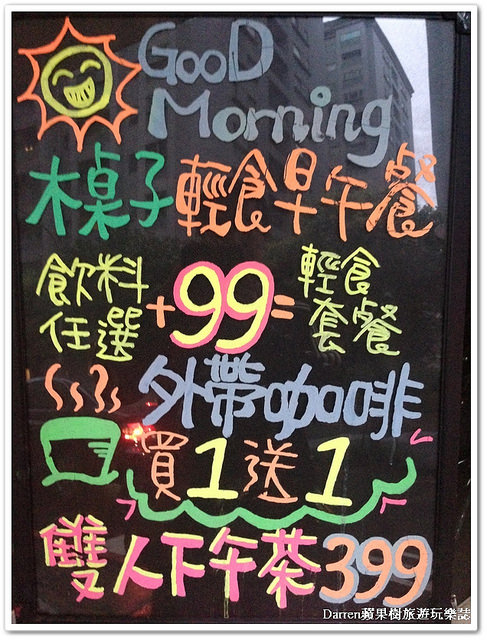 GooD
Morning
木桌子輕食早午餐
飲料任選+99=輕食套餐
外帶咖啡
買1送1
雙人下午茶399
Darren蘋果樹旅遊玩樂誌